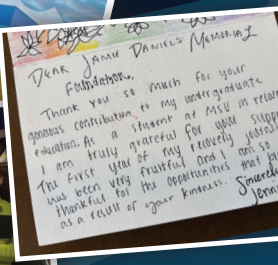 Dear Jamie Daniels Memorial
Foundation,
Thank you so much for your
generous contribution to my undergraduate
education. As a student at MSU in
I am truly grateful for your
The first year of my recovery
has been very fruitful and I am so
thankful for the opportunities that
as a result of your kindness. Sincerely